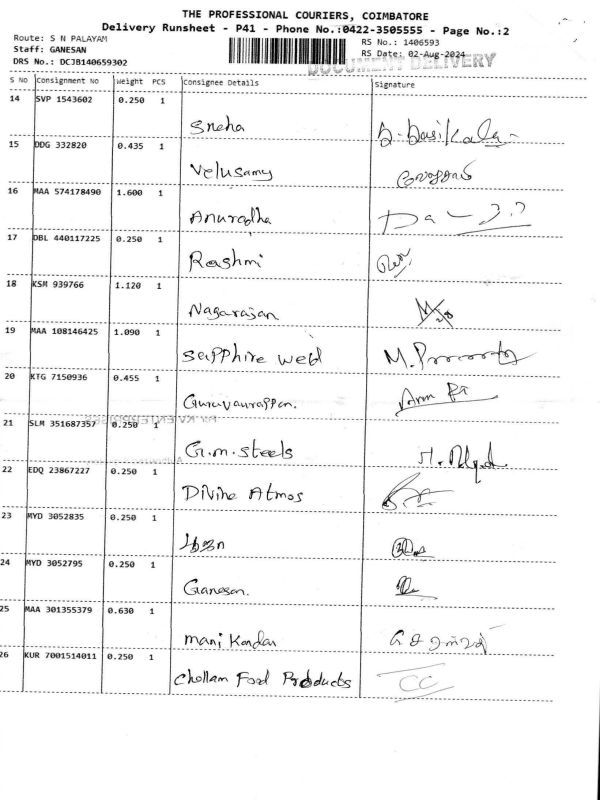 THE PROFESSIONAL COURIERS, COIMBATORE
Delivery Runsheet - P41 - Phone No.:0422-3505555 - Page No.:2
Route: S N PALAYAM
RS No.: 1406593
Staff: GANESAN
RS Date: 02-Aug-2024
DOCUMENT DELIVERY
DRS No.: DCJB140659302
S No Consignment No Weight PCS Consignee Details Signature
14 SVP 1543602 0.250 1
Sneha
15 DDG 332820 0.435 1
Velusamy
16 MAA 574178490 1.600 1
Anuradha
17 DBL 440117225 0.250 1
Rashmi
18 KSM 939766 1.120 1
Nagarajan
19 MAA 108146425 1.090 1
Sapphire Weld
20 KTG 7150936 0.455 1
Guruvaurappan.
21 SLM 351687357 0.250 1
G.m. Steels
22 EDQ 23867227 0.250 1
Divine Atmos
23 MYD 3052835 0.250 1
24 MYD 3052795 0.250 1
Ganesan.
25 MAA 301355379 0.630 1
Manikandan
26 KUR 7001514011 0.250 1
Chellam Food Products CC